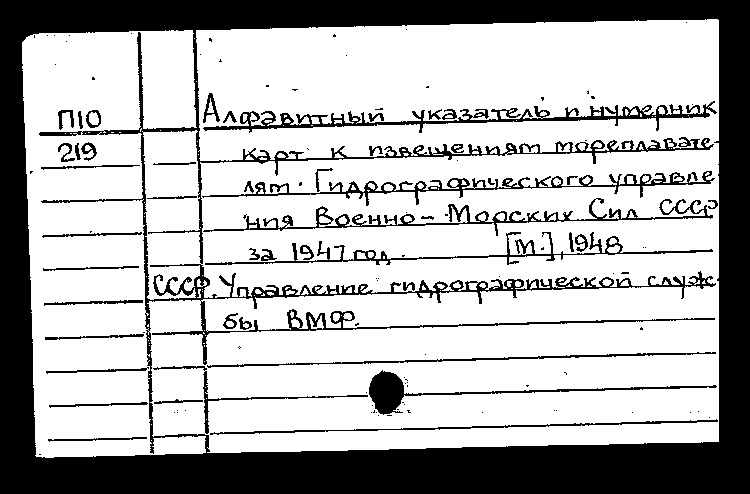 П10 Алфавитный указатель и нумерник
219 карт к извещениям мореплавате-
лям. Гидрографического управле-
ния Военно-Морских Сил СССР
за 1947 год. [М.], 1948
СССР. Управление гидрографической служ-
бы ВМФ.